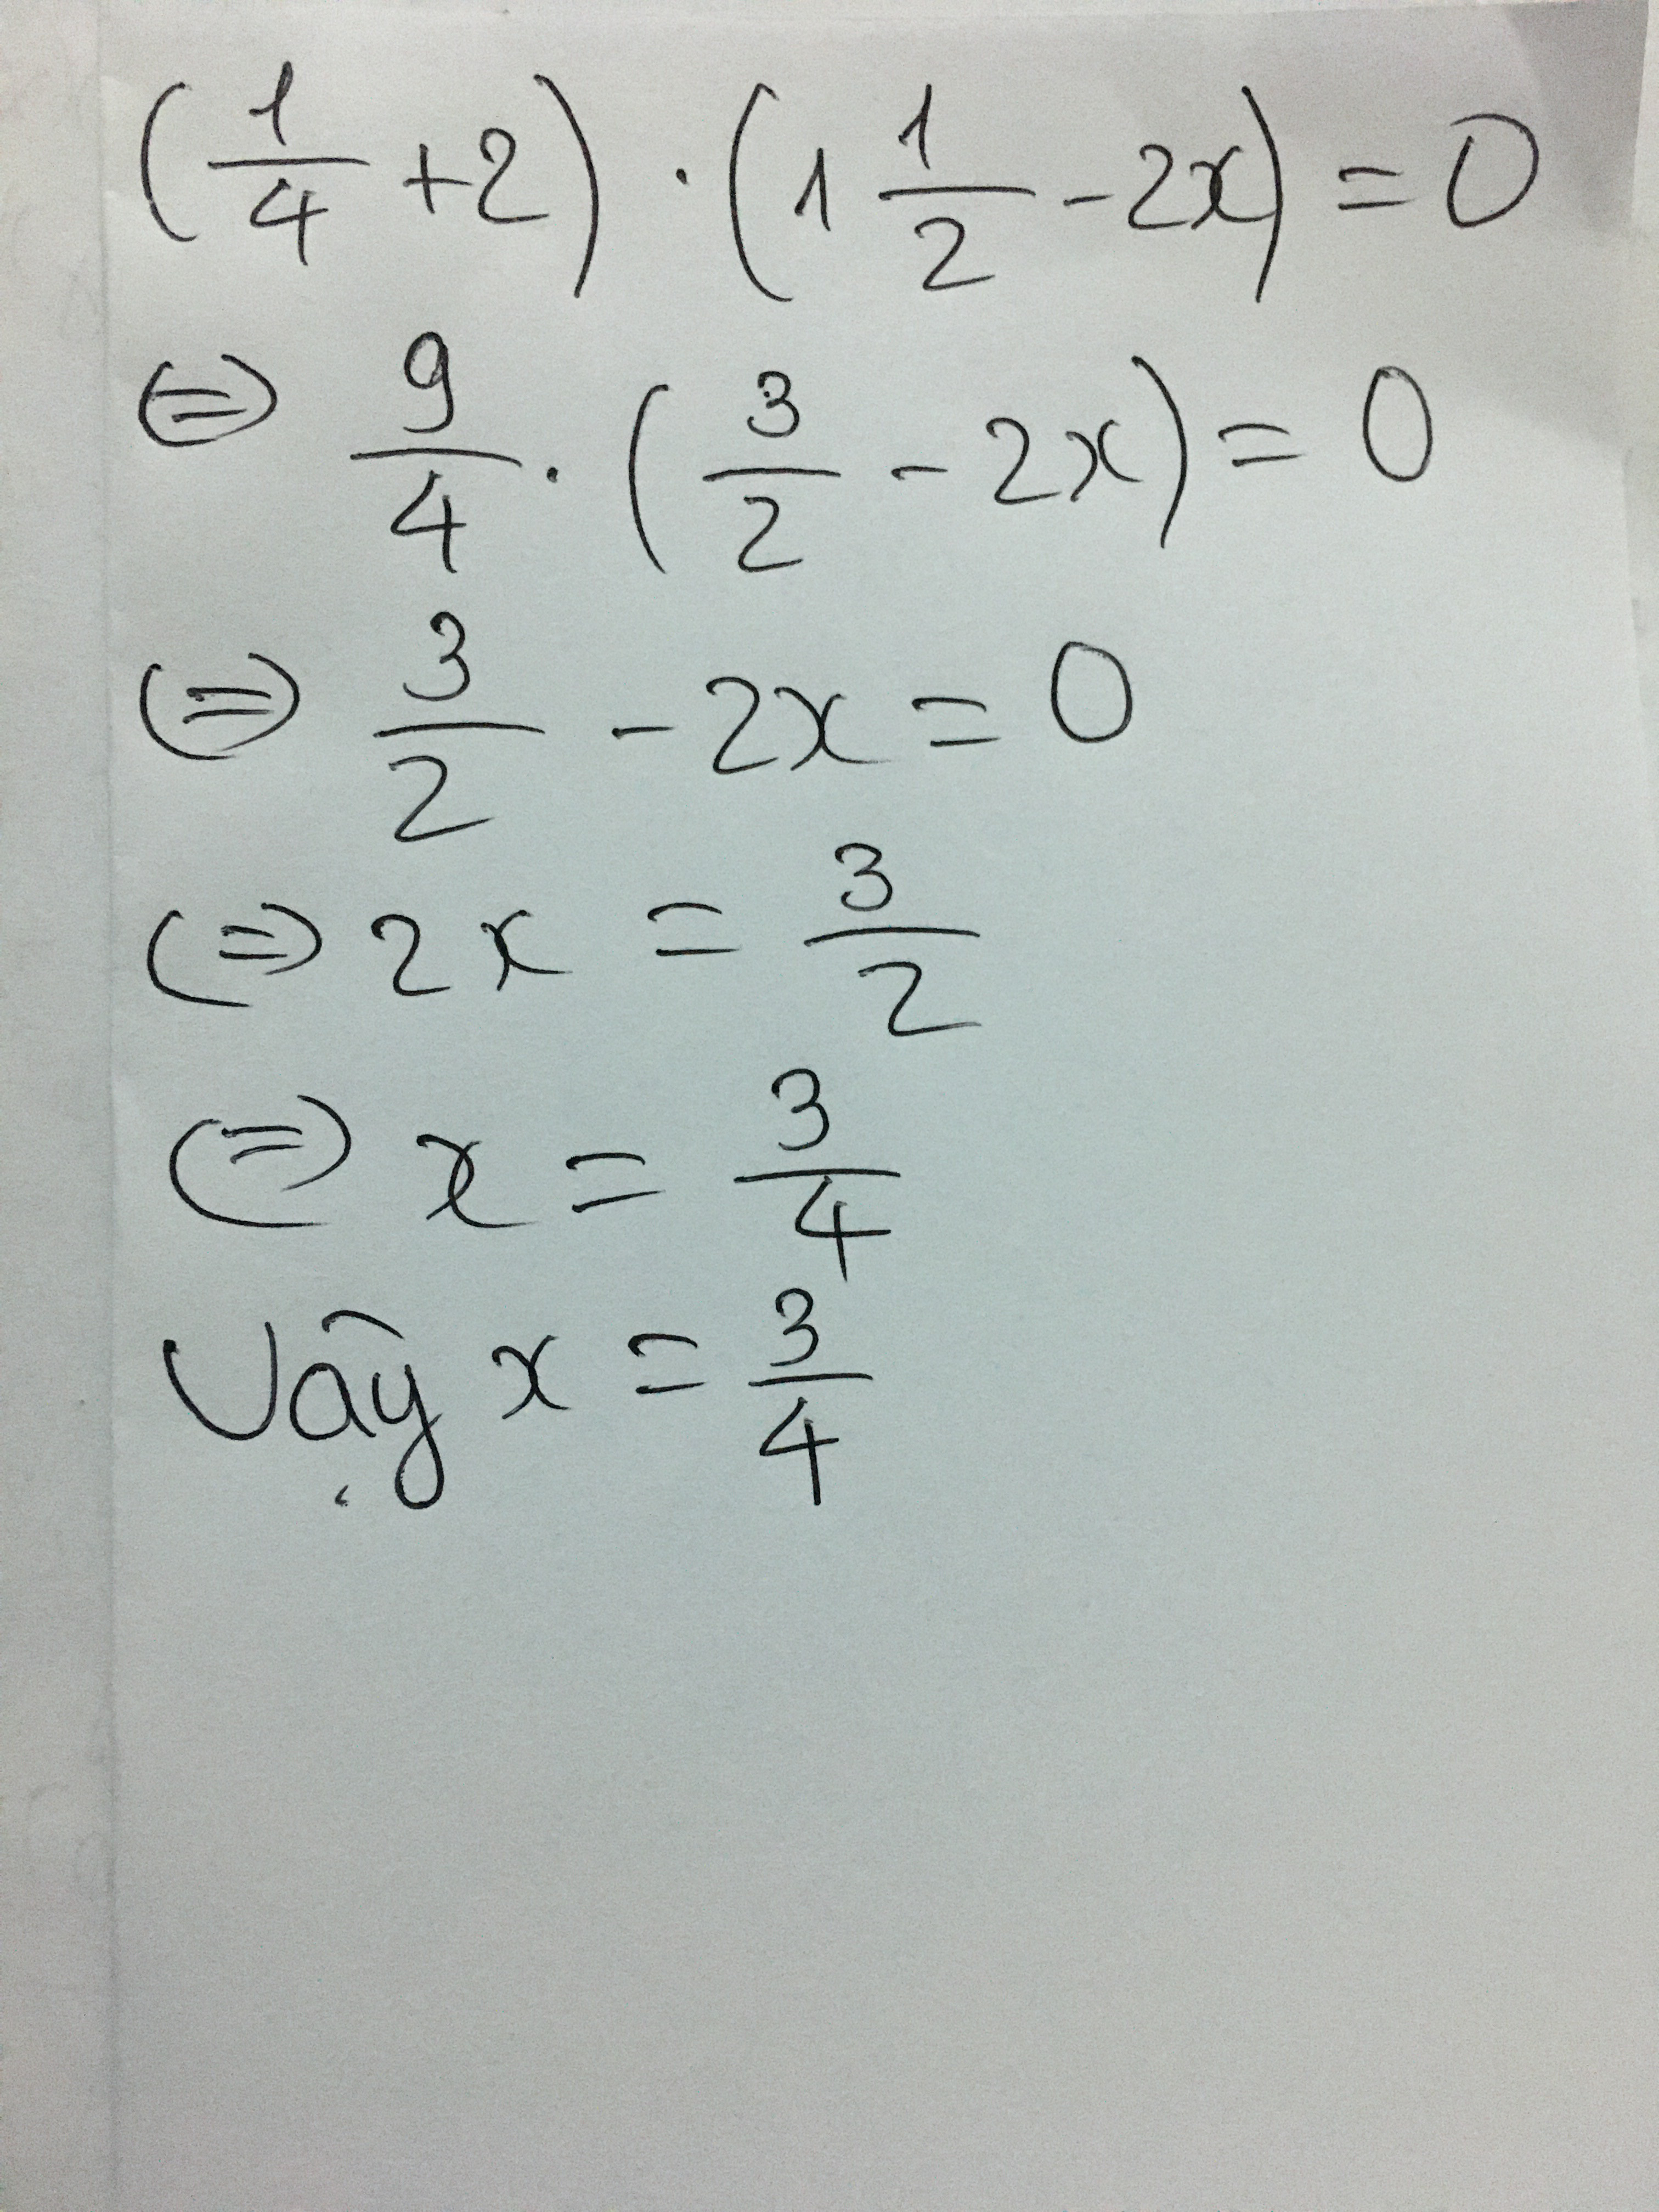 (1/4 + 2) · (1 1/2 - 2x) = 0
⇔ 9/4 · (3/2 - 2x) = 0
⇔ 3/2 - 2x = 0
⇔ 2x = 3/2
⇔ x = 3/4
Vậy x = 3/4